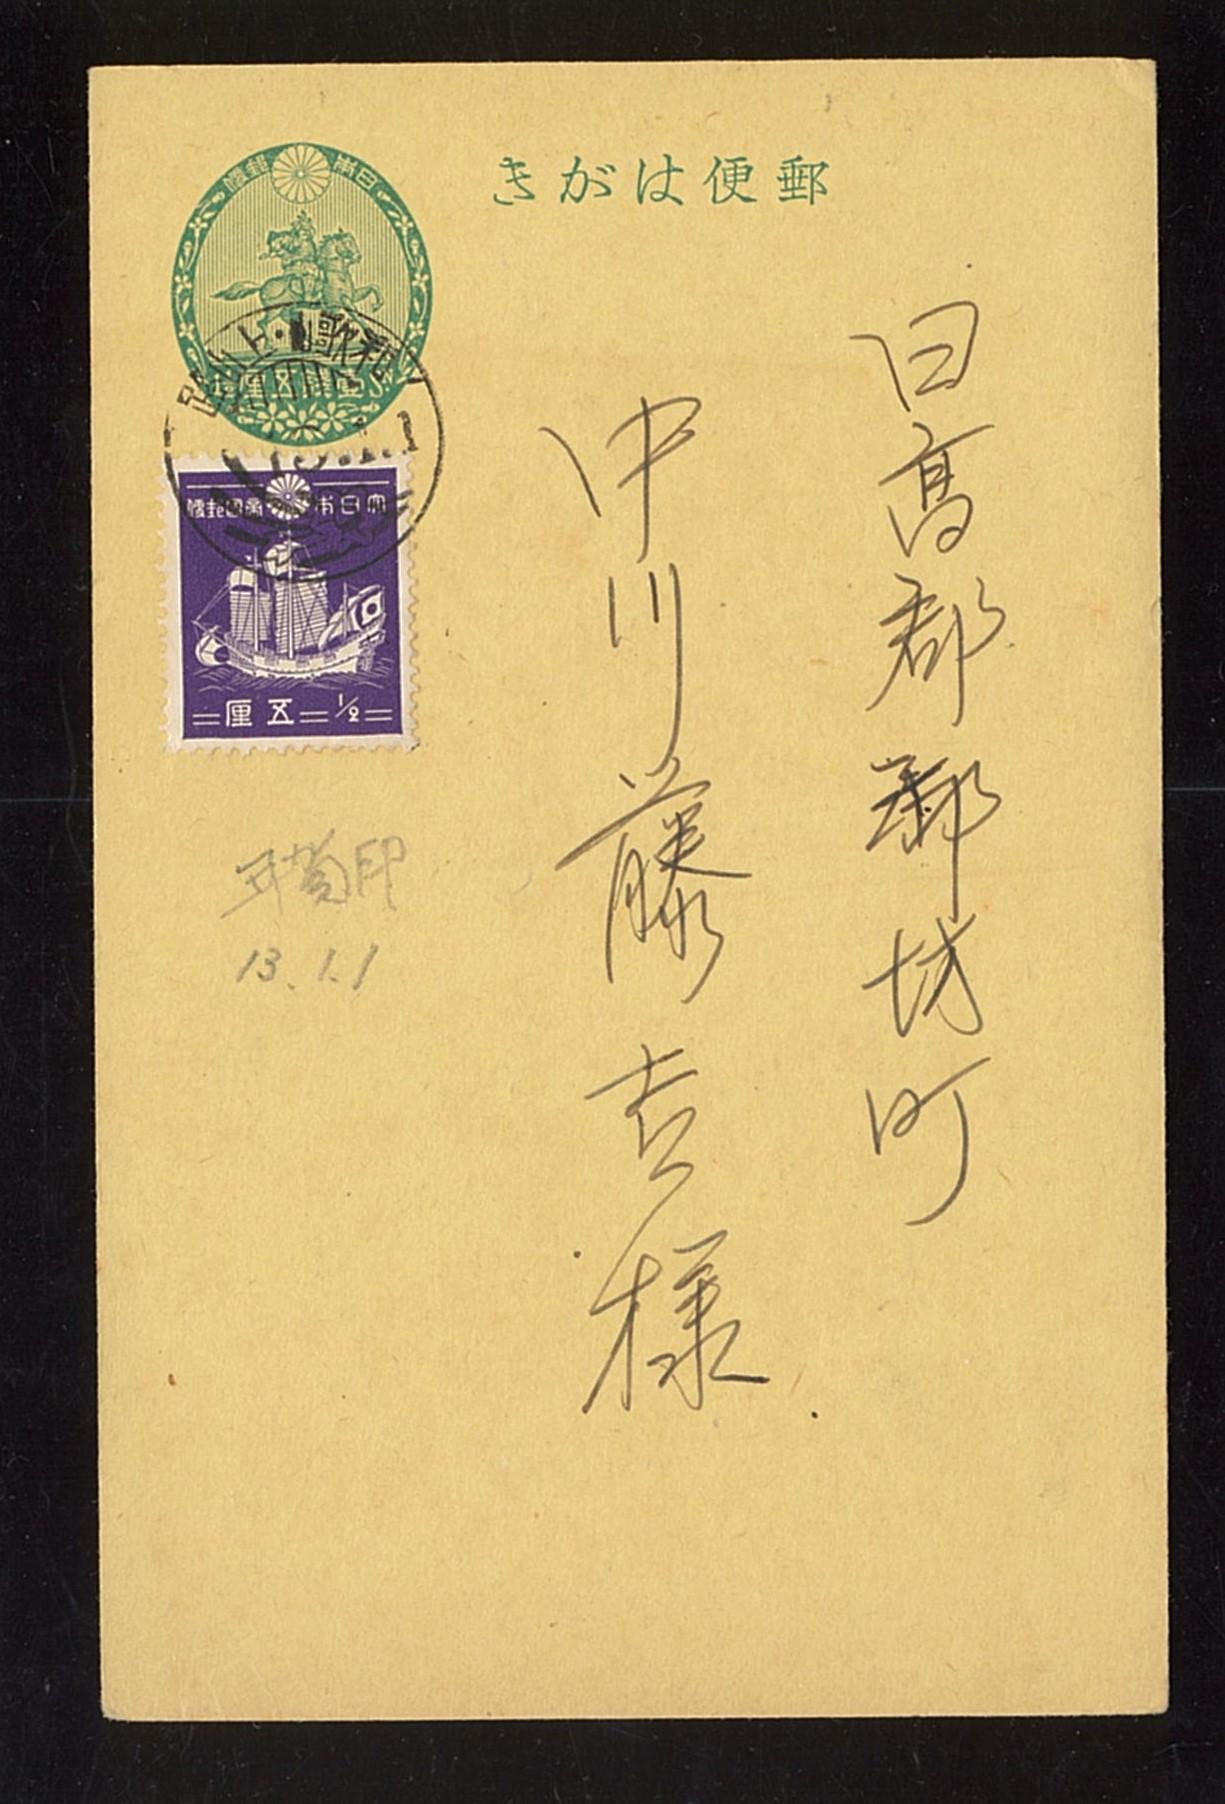 郵便はがき
日本郵便
大日本帝國郵便
五厘 1/2
年賀印
13.1.1
日高郡御坊町
中川藤吉様